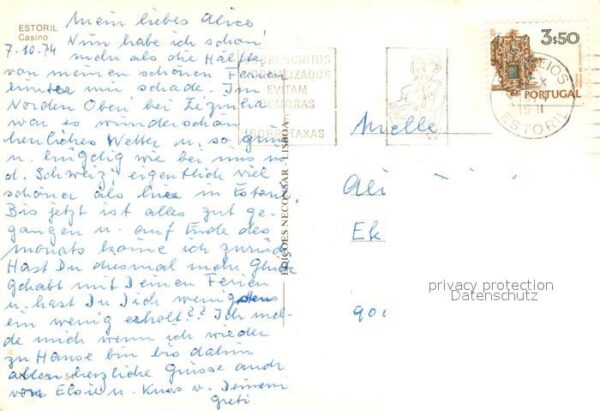 ESTORIL
Casino
7.10.74
Mein liebes Alice
Nun habe ich schon
mehr als die Hälfte
von meinen schönen Ferien
hinter mir schade. Im
Norden Oben bei Zezinha
war es wunderschön
herrliches Wetter u. so grün
u. hügelig wie bei uns in
d. Schweiz, eigentlich viel
schöner als hier in Estoril.
Bis jetzt ist alles gut ge-
gangen u. auf Ende des
monats komme ich zurück.
Hast Du diesmal mehr Glück
gehabt mit Deinen Ferien
u. hast Du Dich wenigstens
ein wenig erholt?? Ich mel-
de mich wenn ich wieder
zu Hause bin bis dahin
allen herzliche Grüsse auch
von Elsie u. Kuss v. Deinem
Greti
EDIÇÕES NECONSAR - LISBOA
SOBRESCRITOS
NORMALIZADOS
EVITAM
DEMORAS
SOBRETAXAS
3$50
PORTUGAL
CORREIOS
ESTORIL
Mlle
Ali
Ek
privacy protection
Datenschutz
90